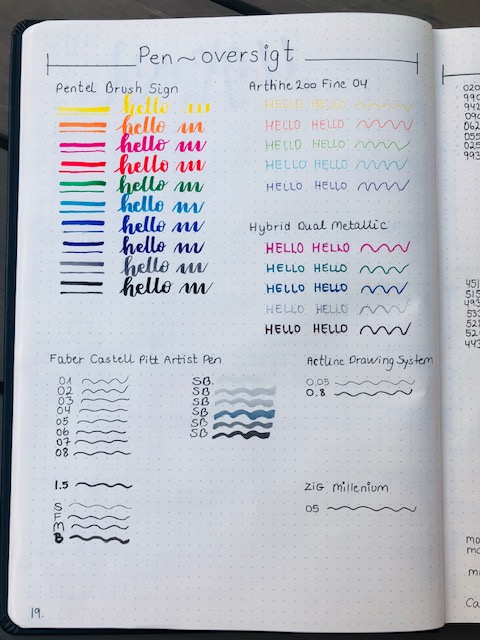 Pen~oversigt
Pentel Brush Sign
hello
hello
hello
hello
hello
hello
hello
hello
hello
hello
Artline 200 Fine 04
HELLO HELLO
HELLO HELLO
HELLO HELLO
HELLO HELLO
HELLO HELLO
Hybrid Dual Metallic
HELLO HELLO
HELLO HELLO
HELLO HELLO
HELLO HELLO
HELLO HELLO
Faber Castell Pitt Artist Pen
01
02
03
04
05
06
07
08
1.5
S
F
M
B
SB
SB
SB
SB
SB
SB
Artline Drawing System
0,05
0.8
ZiG Millenium
05
19.